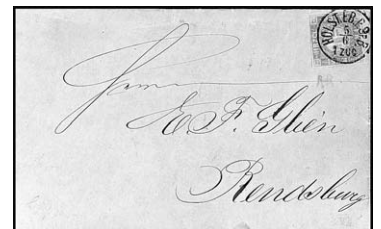 HOLSTEIN.E.S.P.
5
6
1 ZUG
Herrn
E. F. Glien
Rendsburg